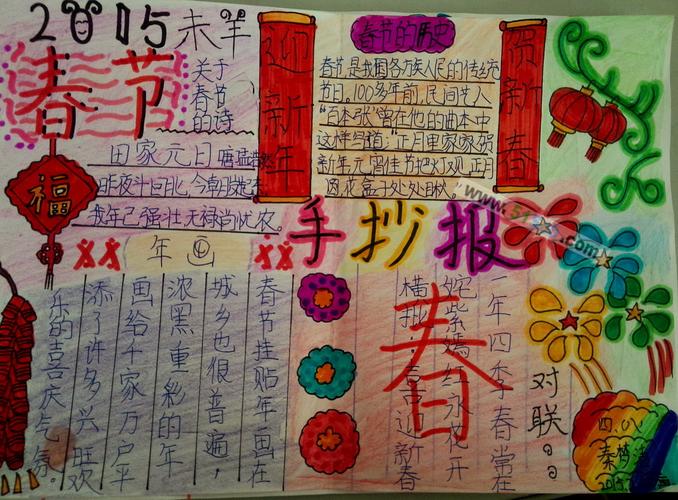 2015未羊
春节
关于
春节
的诗
迎新年
春节的历史
春节是我国各万族人民的传统
节日。100多年前,民间艺人
"百本张"曾在他的曲本中
这样写道:正月里家家贺
新年,元宵佳节把灯观,正月
贺新春
田家元日 唐孟浩然
昨夜斗回北,今朝
我年已强壮,无禄尚忧农。
福
手抄报
年画
春节挂贴年画在
城乡也很普遍,
浓黑重彩的年
画给千家万户平
添了许多兴旺欢
乐的喜庆气氛。
春
对联。。
一年四季春常在
紫嫣红永花开
横批:喜迎新春
四.